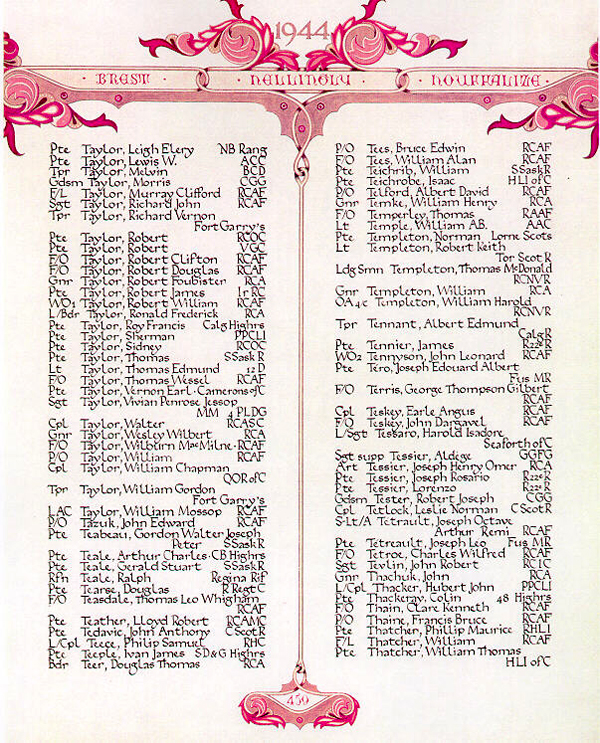 1944
BREST · HELLINGLY · HOUFFALIZE
Pte Taylor, Leigh Elery NB Rang
Pte Taylor, Lewis W. ACC
Tpr Taylor, Melvin BCD
Gdsm Taylor, Morris CGG
F/L Taylor, Murray Clifford RCAF
Sgt Taylor, Richard John RCAF
Tpr Taylor, Richard Vernon
Fort Garry's
Pte Taylor, Robert RCOC
Pte Taylor, Robert VGC
F/O Taylor, Robert Clifton RCAF
F/O Taylor, Robert Douglas RCAF
Gnr Taylor, Robert Foubister RCA
Pte Taylor, Robert James Ir RC
WO1 Taylor, Robert William RCAF
L/Bdr Taylor, Ronald Frederick RCA
Pte Taylor, Roy Francis Calg Highrs
Pte Taylor, Sherman PPCLI
Pte Taylor, Sidney RCOC
Pte Taylor, Thomas S Sask R
Lt Taylor, Thomas Edmund 12 D
F/O Taylor, Thomas Wessel RCAF
Pte Taylor, Vernon Earl · Camerons of C
Sgt Taylor, Vivian Penrose Jessop
MM 4 PLDG
Cpl Taylor, Walter RCASC
Gnr Taylor, Wesley Wilbert RCA
F/O Taylor, Wilburn MacMilne · RCAF
P/O Taylor, William RCAF
Cpl Taylor, William Chapman
QOR of C
Tpr Taylor, William Gordon
Fort Garry's
LAC Taylor, William Mossop RCAF
P/O Tazuk, John Edward RCAF
Pte Teabeau, Gordon Walter Joseph
Peter S Sask R
Pte Teale, Arthur Charles · CB Highrs
Pte Teale, Gerald Stuart S Sask R
Rfn Teale, Ralph Regina Rif
Pte Tearse, Douglas R Regt C
F/O Teasdale, Thomas Leo Whigham
RCAF
Pte Teather, Lloyd Robert RCAMC
Pte Tedavic, John Anthony C Scot R
L/Cpl Teece, Philip Samuel RHC
Pte Teeple, Ivan James SD&G Highrs
Bdr Teer, Douglas Thomas RCA
P/O Tees, Bruce Edwin RCAF
F/O Tees, William Alan RCAF
Pte Teichrib, William S Sask R
Pte Teichrobe, Isaac HLI of C
P/O Telford, Albert David RCAF
Gnr Temke, William Henry RCA
F/O Temperley, Thomas RAAF
Lt Temple, William AB. AAC
Pte Templeton, Norman Lorne Scots
Lt Templeton, Robert Keith
Tor Scot R
Ldg Smn Templeton, Thomas McDonald
RCNVR
Gnr Templeton, William RCA
OA 4c Templeton, William Harold
RCNVR
Tpr Tennant, Albert Edmund
Calg R
Pte Tennier, James R22eR
WO2 Tennyson, John Leonard RCAF
Pte Tero, Joseph Edouard Albert
Fus MR
F/O Terris, George Thompson Gilbert
RCAF
Cpl Teskey, Earle Angus RCAF
F/O Teskey, John Dargavel RCAF
L/Sgt Tessaro, Harold Isadore
Seaforth of C
Sgt supp Tessier, Aldège GGFG
Art Tessier, Joseph Henry Omer RCA
Pte Tessier, Joseph Rosario R22eR
Pte Tessier, Lorenzo R22eR
Gdsm Tester, Robert Joseph CGG
Cpl Tetlock, Leslie Norman C Scot R
S-Lt/A Tetrault, Joseph Octave
Arthur Remi RCAF
Pte Tetreault, Joseph Leo Fus MR
F/O Tetroe, Charles Wilfred RCAF
Sgt Tevlin, John Robert RCIC
Gnr Thachuk, John RCA
L/Cpl Thacker, Hubert John PPCLI
Pte Thackeray, Colin 48 Highrs
F/O Thain, Clare Kenneth RCAF
P/O Thaine, Francis Bruce RCAF
Pte Thatcher, Phillip Maurice RHLI
F/L Thatcher, William RCAF
Pte Thatcher, William Thomas
HLI of C
459